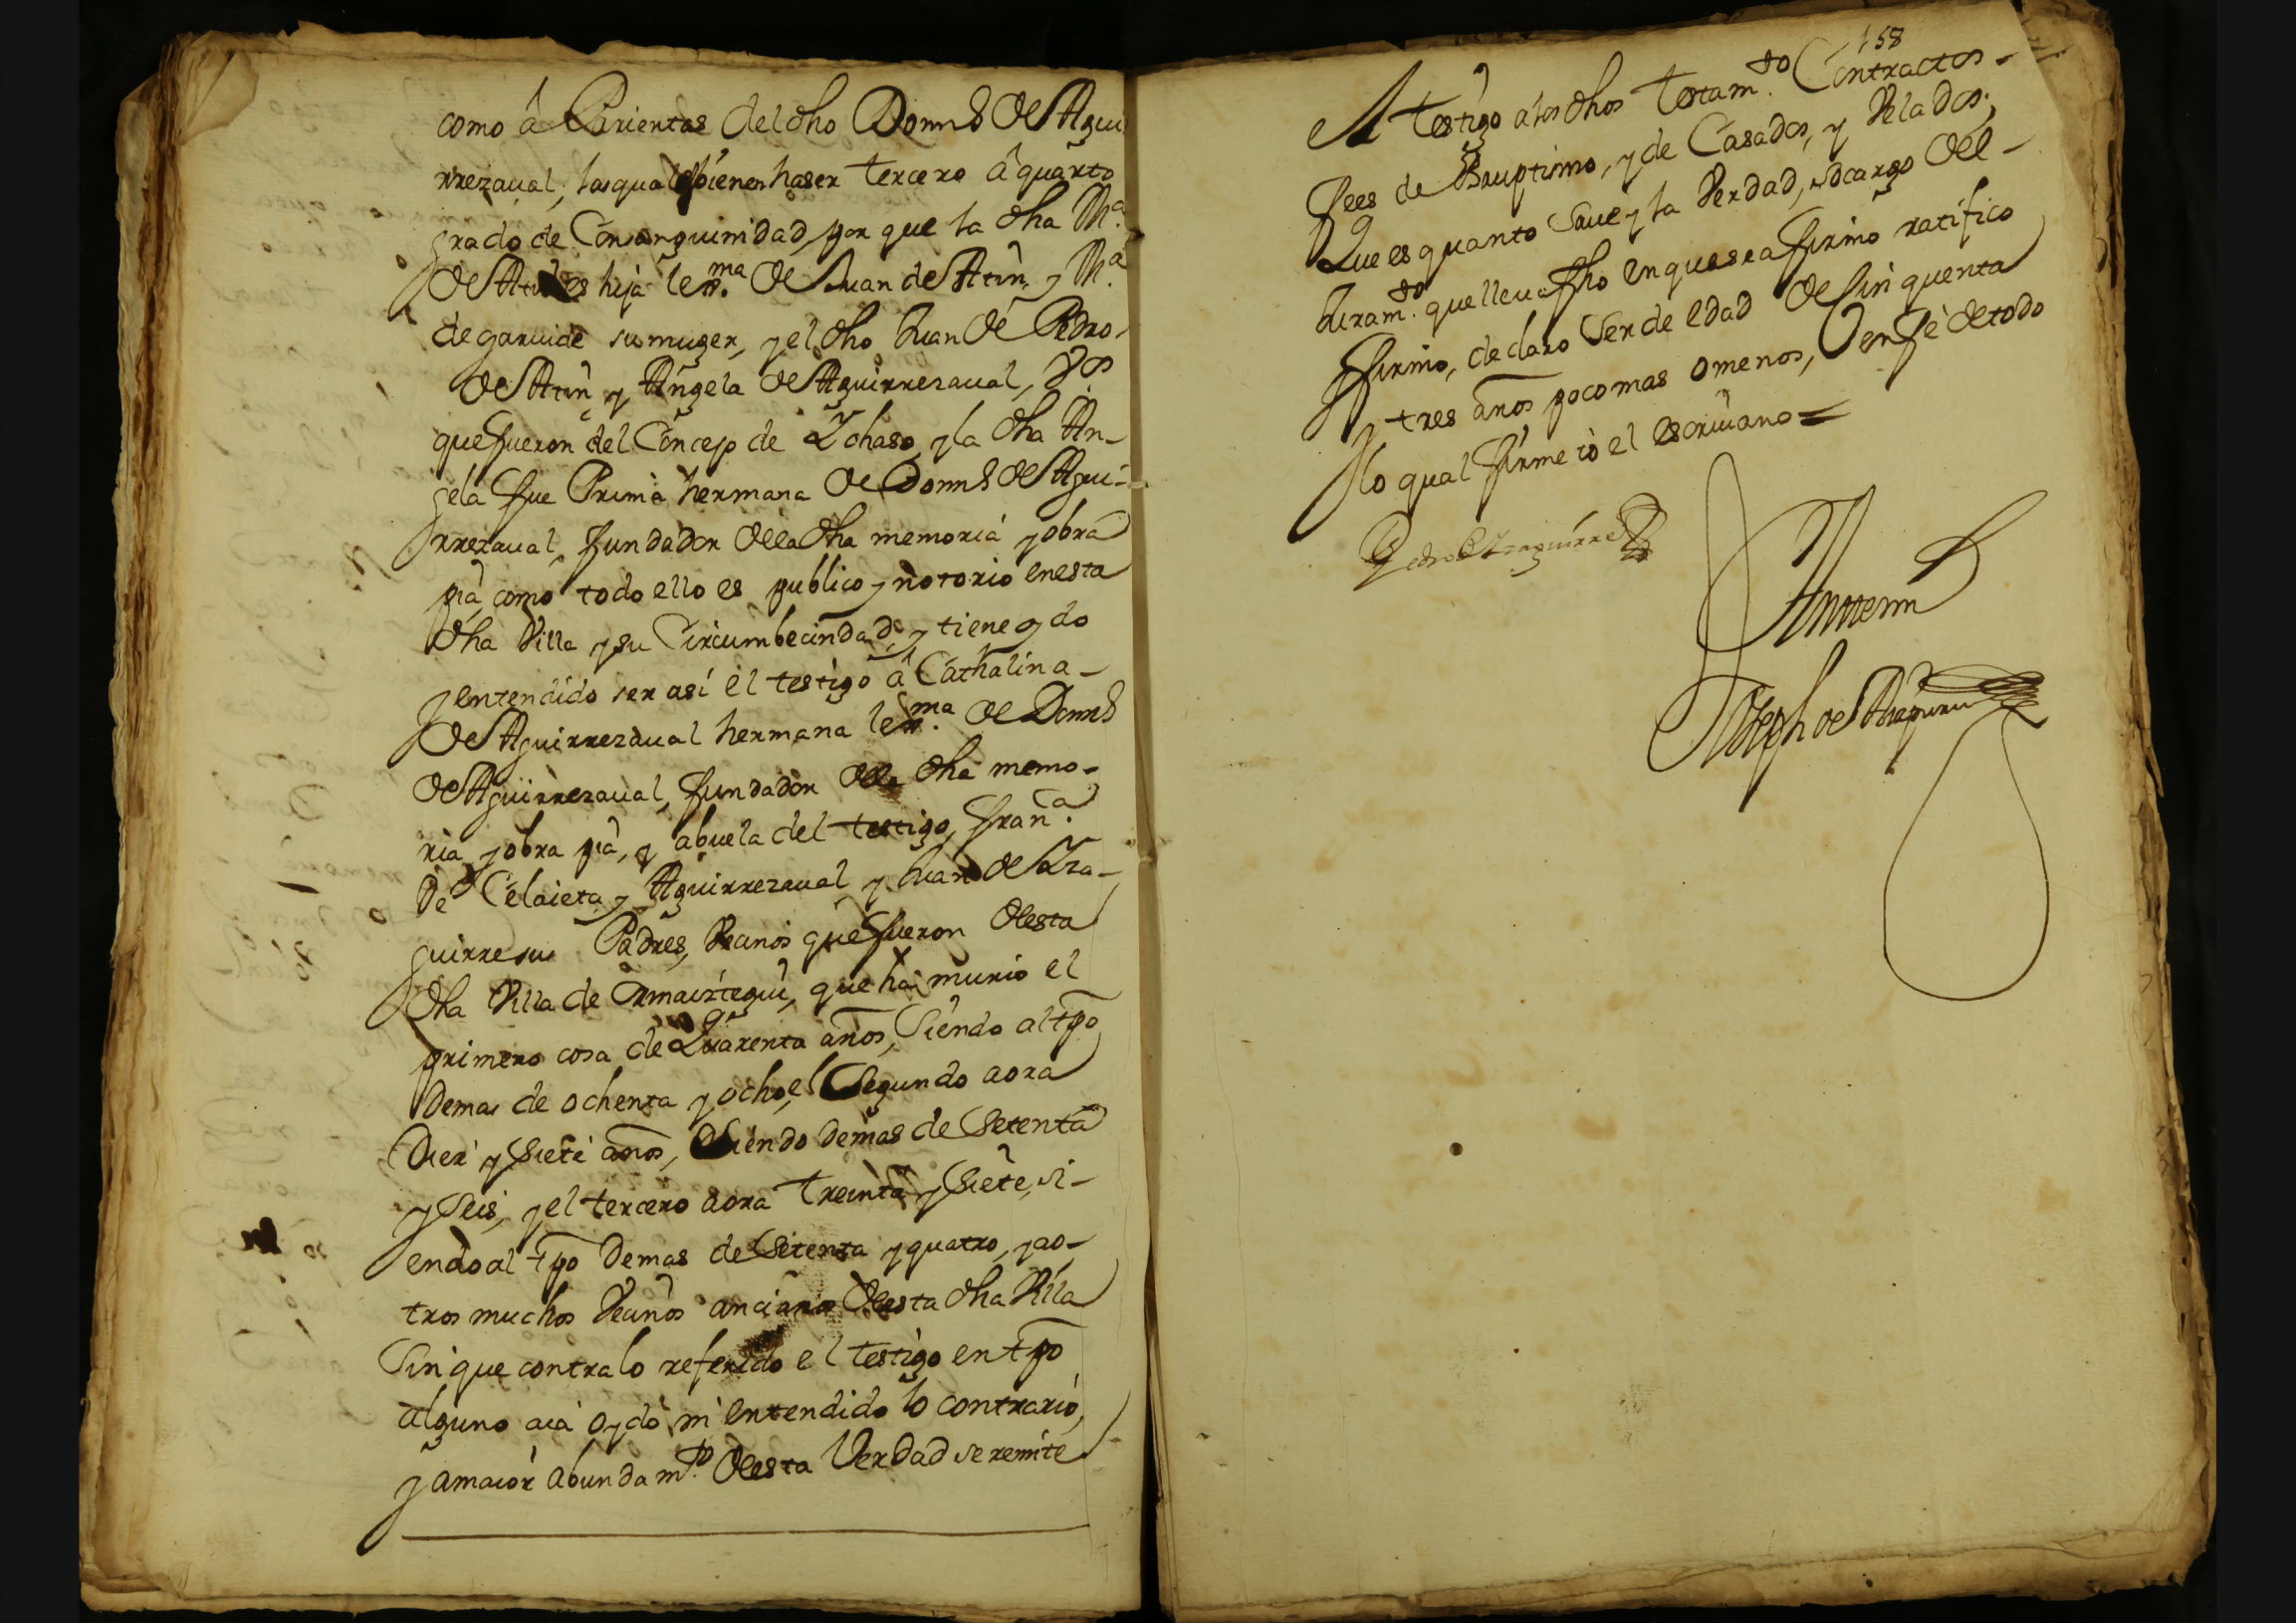 como â Parientas del dho Domns de Agui
rrezaual, las quales bienen haser tercero â quarto
grado de Consanguinidad, por que la dha Mª.
de Atin es hija lexma. de Juan de Atin, y Mª.
de garuide su muger, y el dho Juan de Pedro
de Atin y Angela de Aguirrezaual, Vos.
que fueron del Concejo de Ychaso, y la dha An-
gela fue Prima hermana de Domns de Agui-
rrezaual, fundador de la dha memoria y obra
pia, como todo ello es publico y notorio en esta
dha Villa y su Circumbecindad, y tiene oydo
y entendido ser así el testigo â Cathalina
de Aguirrezaual hermana lexma. de Domns
de Aguirrezaual, fundador de la dha memo-
ria y obra pia, y abuela del testigo, franª.
de Celaieta y Aguirrezaual, y Juan de Yza-
guirre sus Padres, Vecinos que fueron de esta
dha Villa de Ormaiztegui, que ha murio el
primero cosa de Quarenta años, Siendo al tpo
de mas de ochenta y ocho, el Segundo aora
Diez y Siete años, Siendo de mas de Setenta
y Seis, y el tercero aora treinta y Siete, si-
endo al tpo de mas de Setenta y quatro, y ao-
tros muchos Vecinos ancianos de esta dha Villa
Sin que contra lo referido el testigo en tpo
alguno aia oydo ni entendido lo contrario,
y a maior abundamto. de esta Verdad se remite
158
el testigo a los dhos testamto. Contractos
fees de Bauptismo, y de Casados, y Velados,
Que es quanto Saue y la Verdad, so cargo del
Juramto. que lleua fho en que se afirmo ratifico
y firmo, declaro Ser de edad de Sinquenta
y tres años poco mas o menos, y en fè de todo
lo qual firme io el escriuano =
Pedro de Yzaguirre
Ante mi
Joseph de Aizpuru